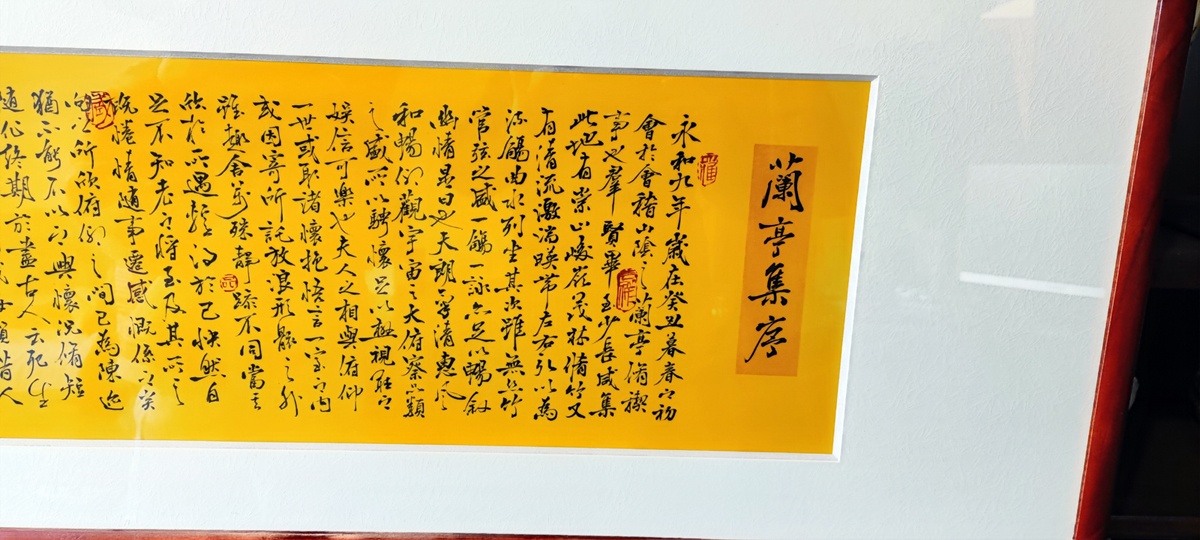 蘭亭集序
永和九年歲在癸丑暮春之初
會於會稽山陰之蘭亭脩禊
事也羣賢畢至少長咸集
此地有崇山峻嶺茂林脩竹又
有清流激湍暎帶左右引以為
流觴曲水列坐其次雖無絲竹
管弦之盛一觴一詠亦足以暢叙
幽情是日也天朗氣清惠風
和暢仰觀宇宙之大俯察品類
之盛所以騁懷足以極視聽之
娛信可樂也夫人之相與俯仰
一世或取諸懷抱悟言一室之內
或因寄所託放浪形骸之外
雖趣舍萬殊靜躁不同當其
欣於所遇暫得於己快然自
足不知老之將至及其所之
既惓情隨事遷感慨係之矣
向之所欣俯仰之間已為陳迹
猶不能不以之興懷況脩短
隨化終期於盡古人云死生